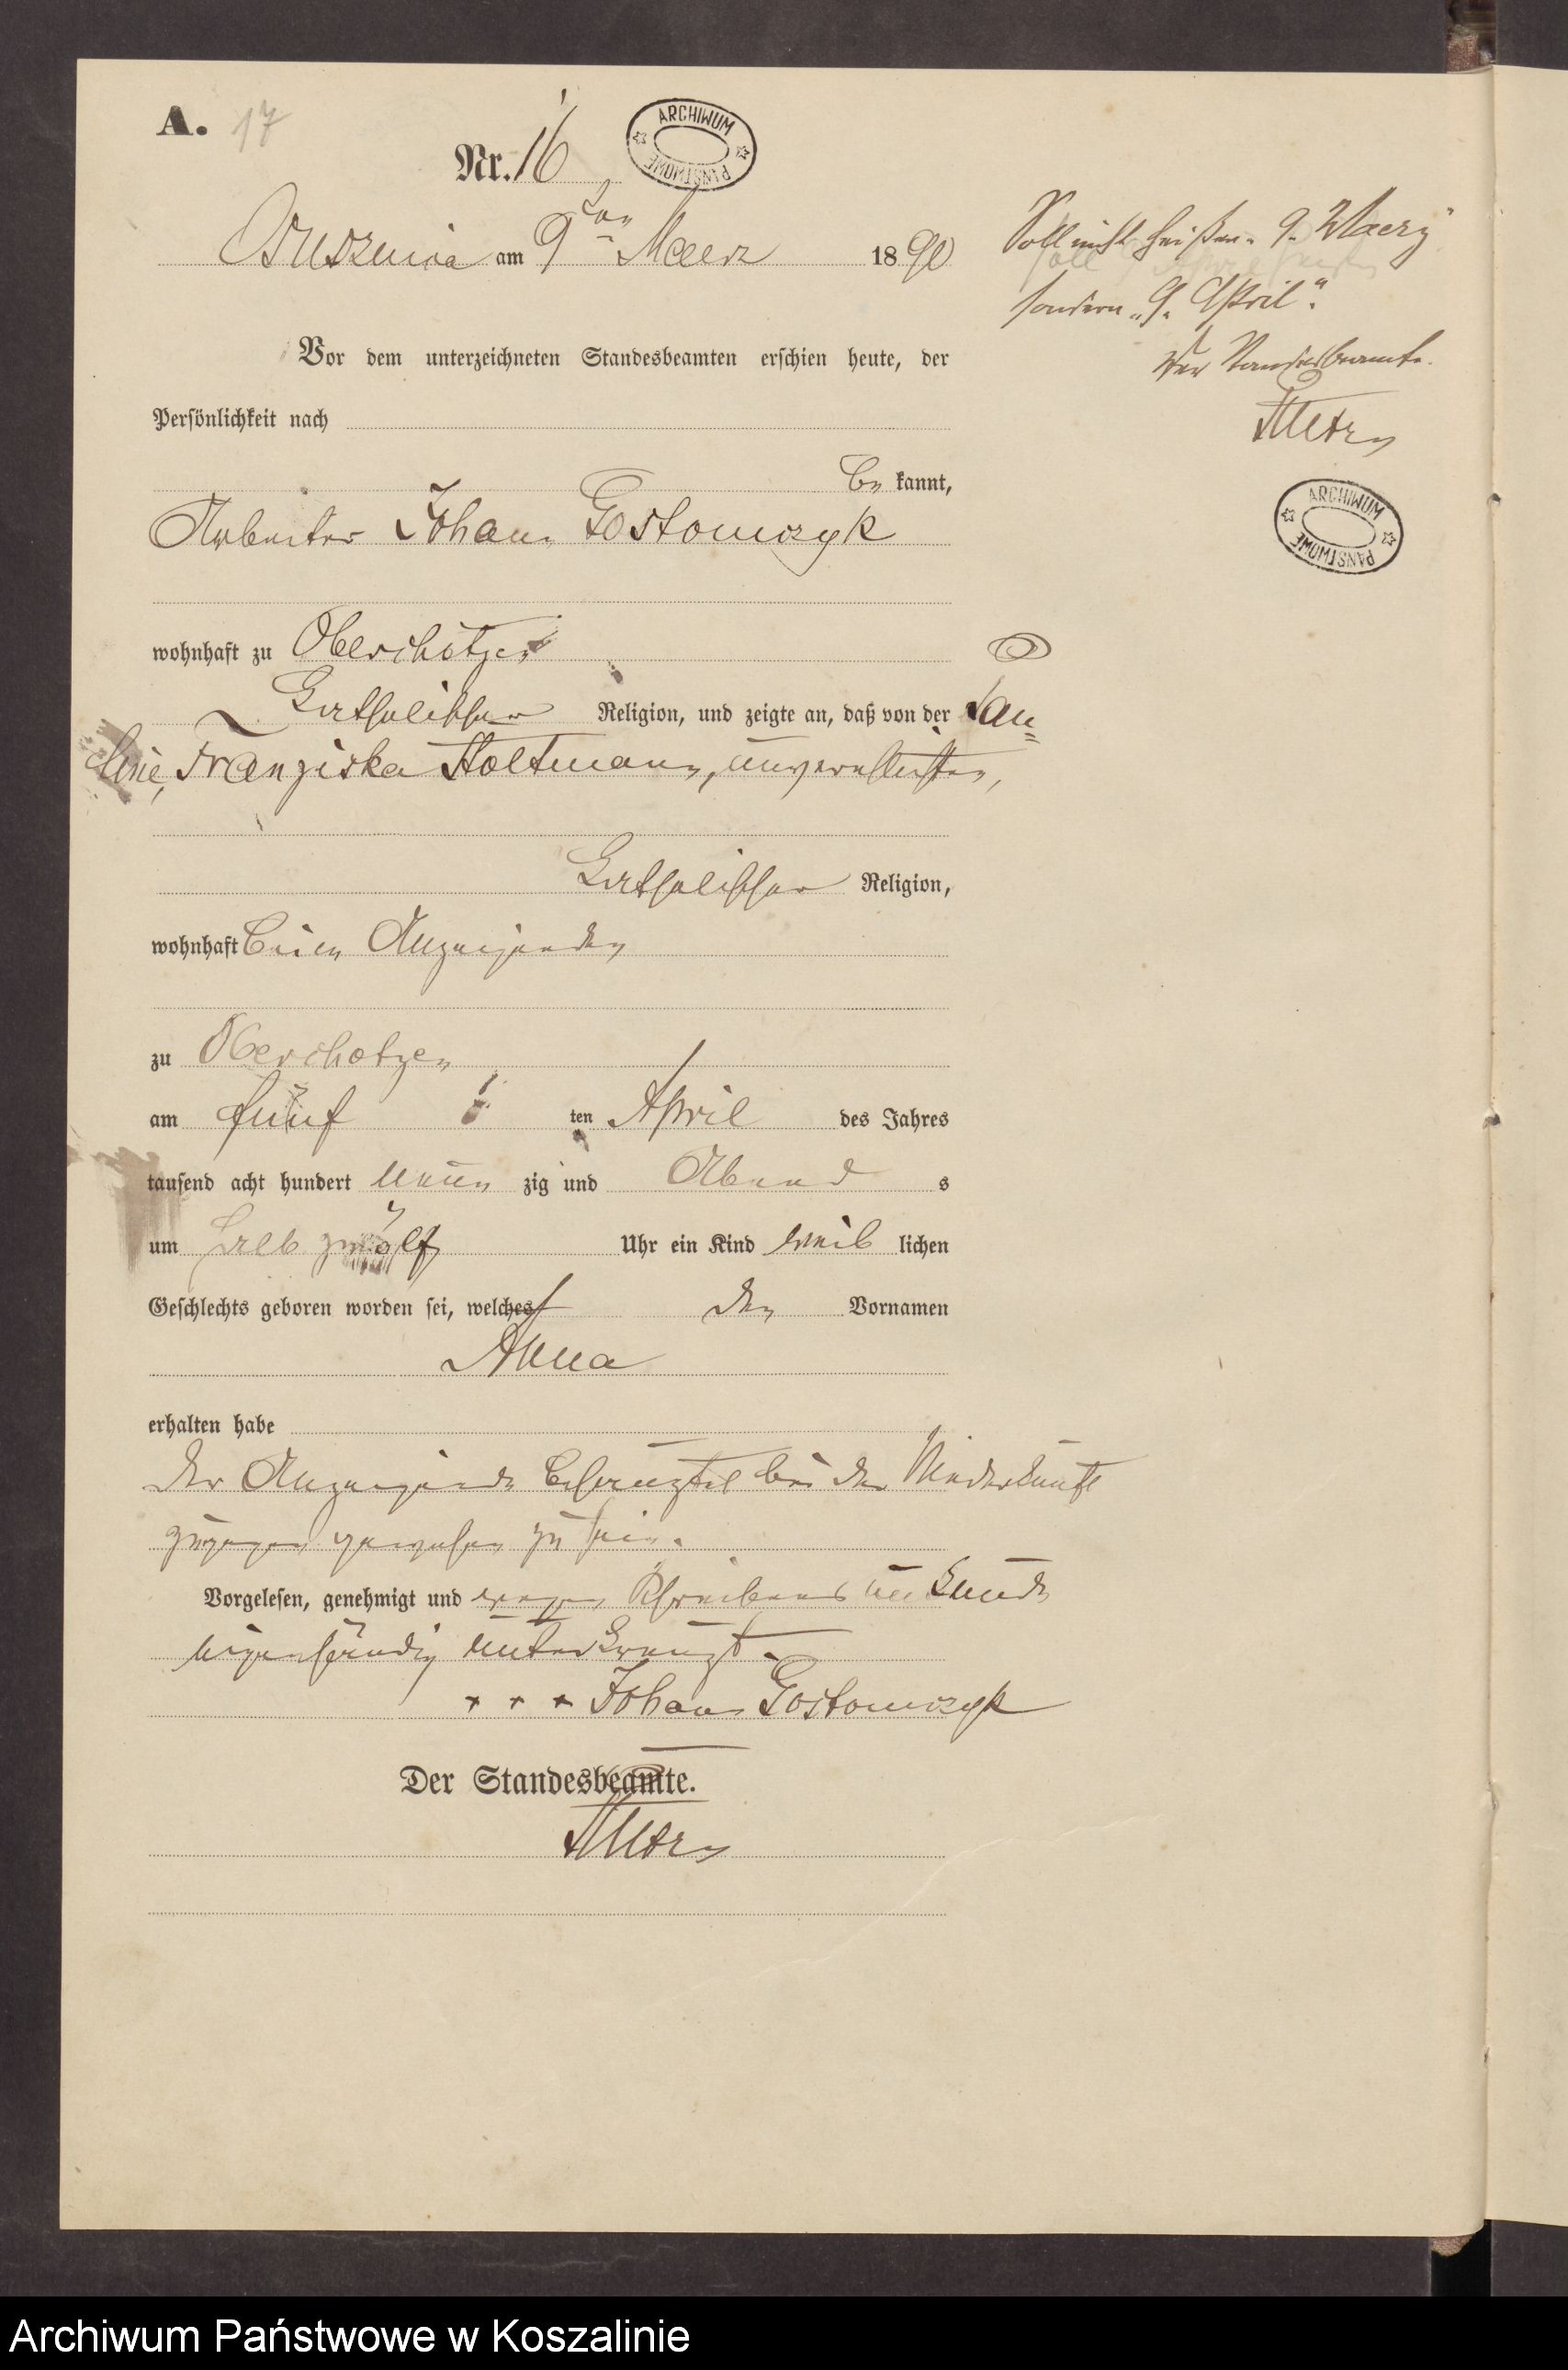 A. 17
Nr. 16
ARCHIWUM PAŃSTWOWE
am 9ten Maerz 1890
Soll nicht heißen „9. Maerz“
sondern „9. April“.
Der Standesbeamte.
ARCHIWUM PAŃSTWOWE
Vor dem unterzeichneten Standesbeamten erschien heute, der
Persönlichkeit nach
be kannt,
Arbeiter Johann Gostomczyk
wohnhaft zu Oberchotzen
katholischer Religion, und zeigte an, daß von der
Franziska Stoltmann, unverehelichten,
katholischer Religion,
wohnhaft beim Anzeigenden
zu Oberchotzen
am fünf ten April des Jahres
tausend acht hundert neun zig und Abend s
um halb zwölf Uhr ein Kind weib lichen
Geschlechts geboren worden sei, welches den Vornamen
Anna
erhalten habe
Der Anzeigende bei der Niederkunft
zugegen gewesen zu sein.
Vorgelesen, genehmigt und wegen Schreibens unkunde
eigenhändig unterkreuzt.
+ + + Johann Gostomczyk
Der Standesbeamte.
Archiwum Państwowe w Koszalinie